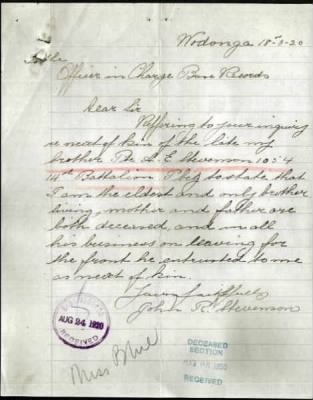 Wodonga 18-8-20
To the
Officer in Charge Base Records
Dear Sir
Reffering to your inquiry
re next of kin of the late my
brother Pte A. E Stevenson 1054
14th Battalion I beg to state that
I am the eldest and only brother
living, mother and father are
both deceased, and in all
his business on leaving for
the front he entrusted to me
as next of kin.
Yours faithfully
John R. Stevenson
AUG 24 1920
RECEIVED
DECEASED
SECTION
RECEIVED
Miss